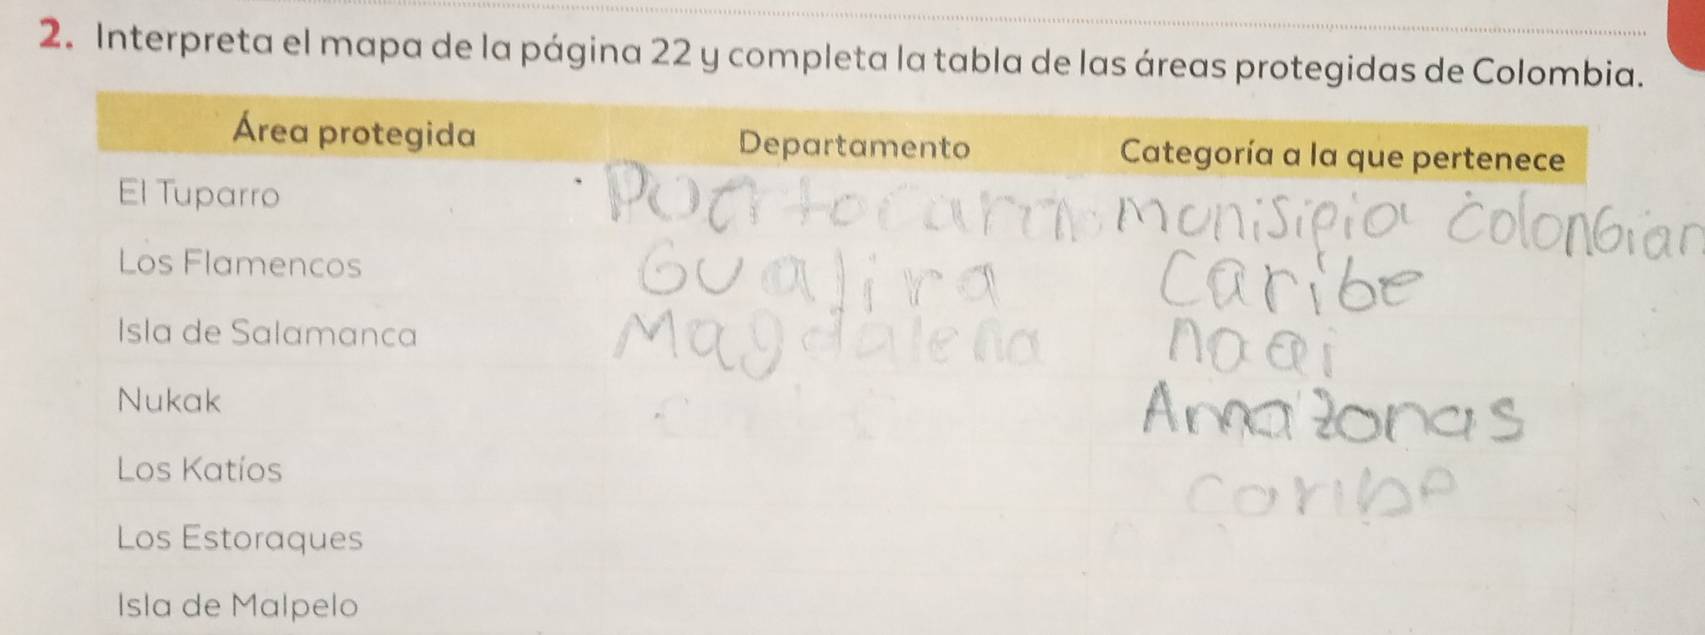 2. Interpreta el mapa de la página 22 y completa la tabla de las áreas protegidas de Colombia.
Área protegida Departamento Categoría a la que pertenece
El Tuparro monisipio colonbian
Los Flamencos Guajira Caribe
Isla de Salamanca Magdalena
Nukak Amazonas
Los Katíos caribe
Los Estoraques
Isla de Malpelo